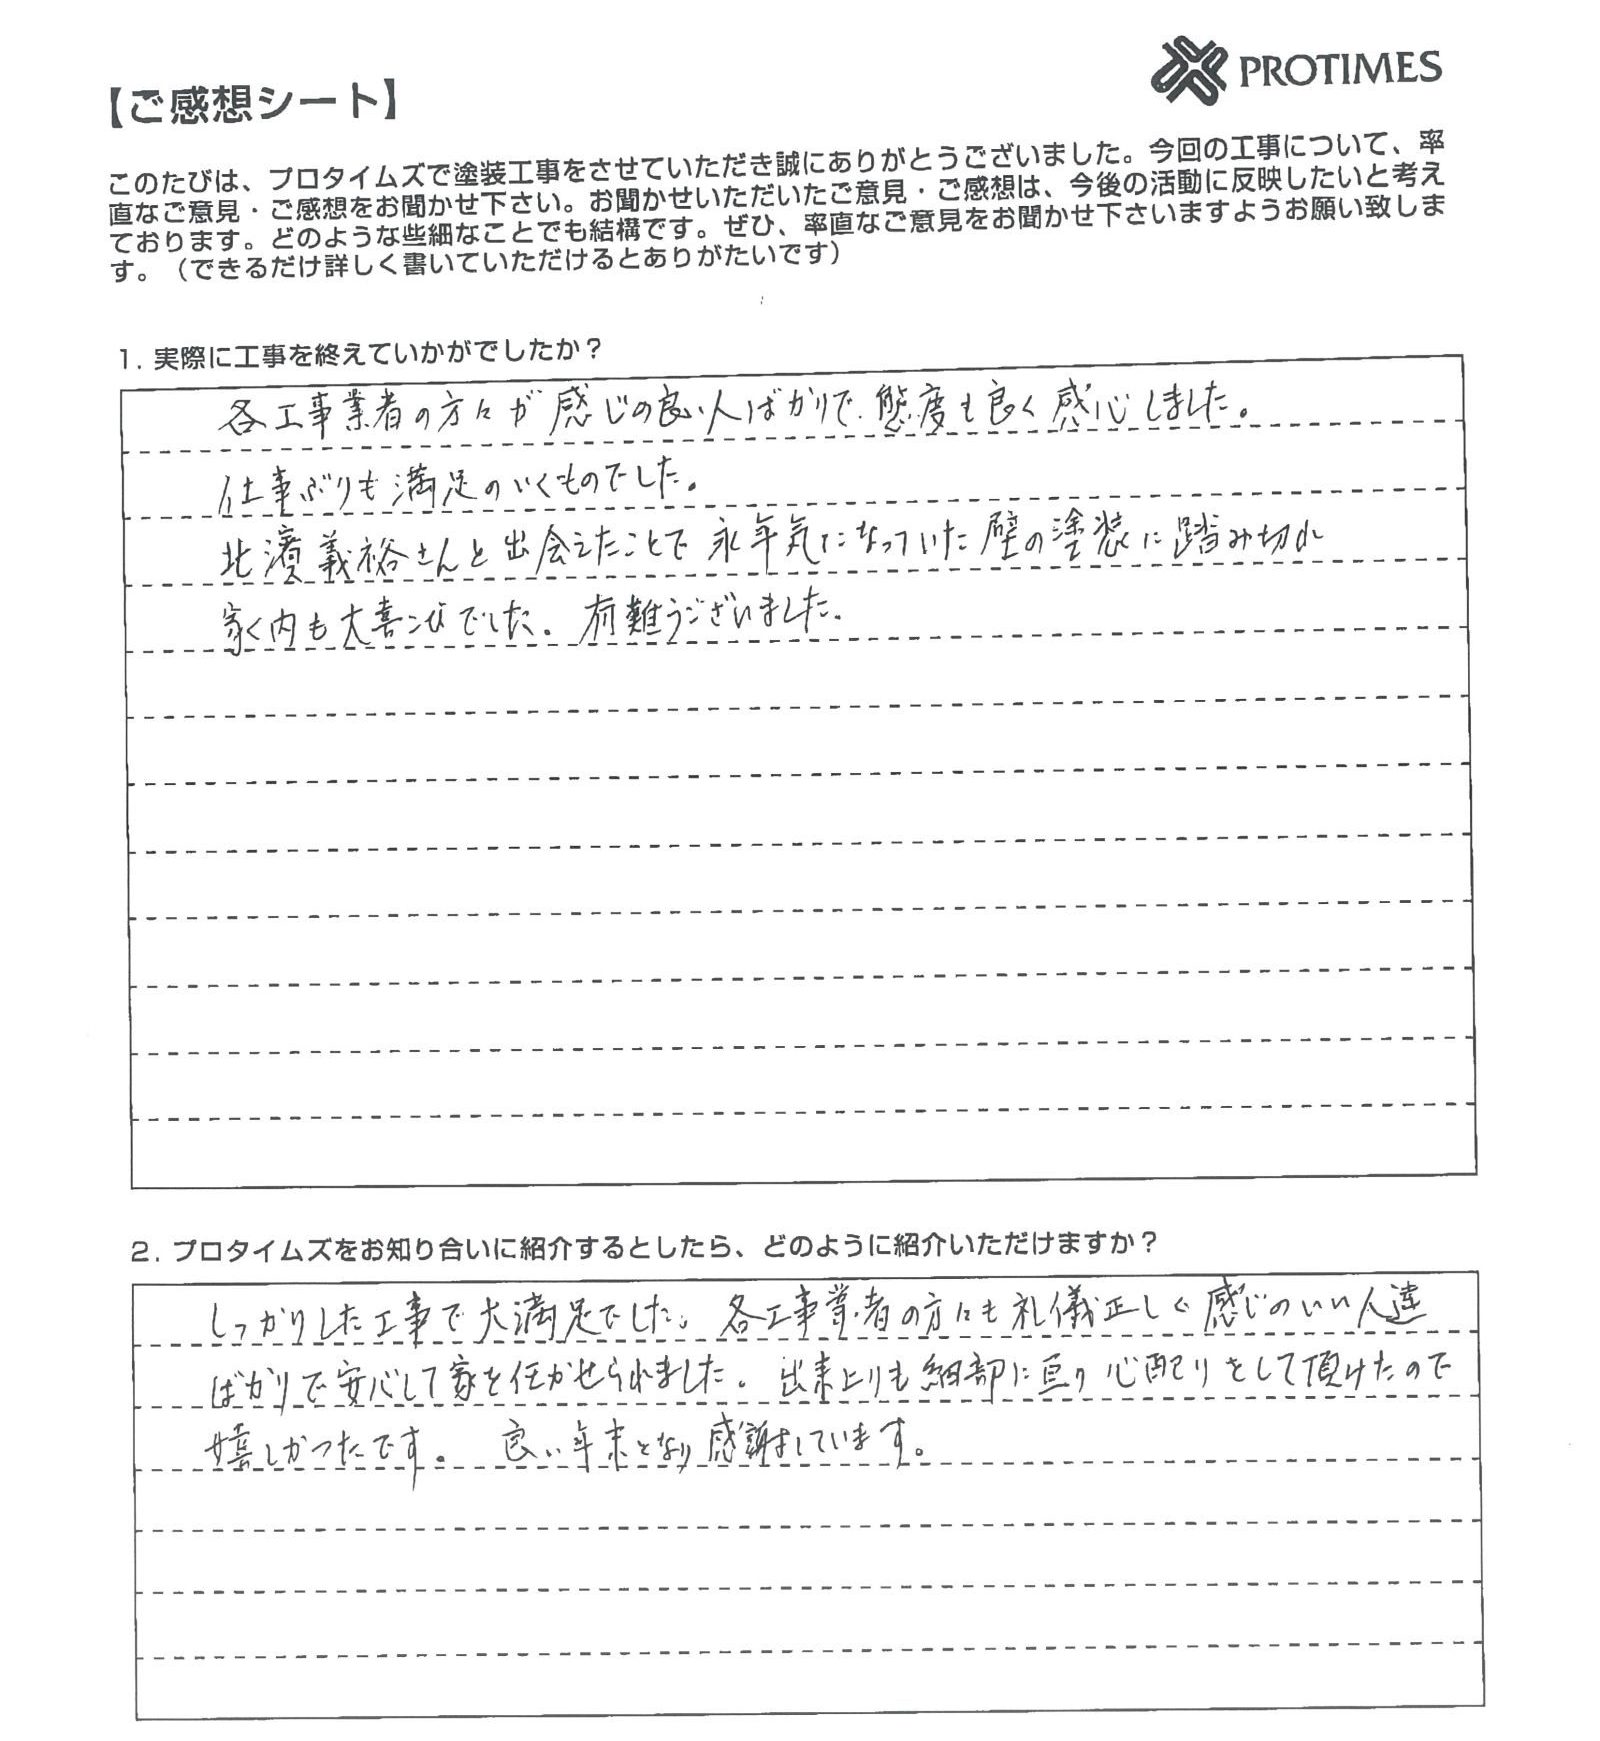 PROTIMES
【ご感想シート】
このたびは、プロタイムズで塗装工事をさせていただき誠にありがとうございました。今回の工事について、率
直なご意見・ご感想をお聞かせ下さい。お聞かせいただいたご意見・ご感想は、今後の活動に反映したいと考え
ております。どのような些細なことでも結構です。ぜひ、率直なご意見をお聞かせ下さいますようお願い致しま
す。（できるだけ詳しく書いていただけるとありがたいです）
1. 実際に工事を終えていかがでしたか？
各工事業者の方々が感じの良い人ばかりで、態度も良く感心しました。
仕事ぶりも満足のいくものでした。
北濱義裕さんと出会えたことで永年気になっていた壁の塗装に踏み切れ
家内も大喜びでした。有難うございました。
2. プロタイムズをお知り合いに紹介するとしたら、どのように紹介いただけますか？
しっかりした工事で大満足でした。各工事業者の方々も礼儀正しく感じのいい人達
ばかりで安心して家を任かせられました。出来上りも細部に亘り心配りをして頂けたので
嬉しかったです。良い年末となり感謝しています。